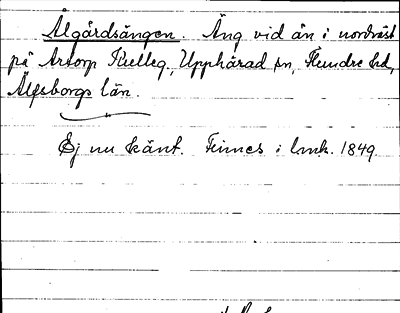 Ålgårdsängen. Äng vid ån i nordväst
på Artorp Kulleg., Upphärad sn, Flundre hd,
Älfsborgs län.
Ej nu känt. Finnes i lmk. 1849.